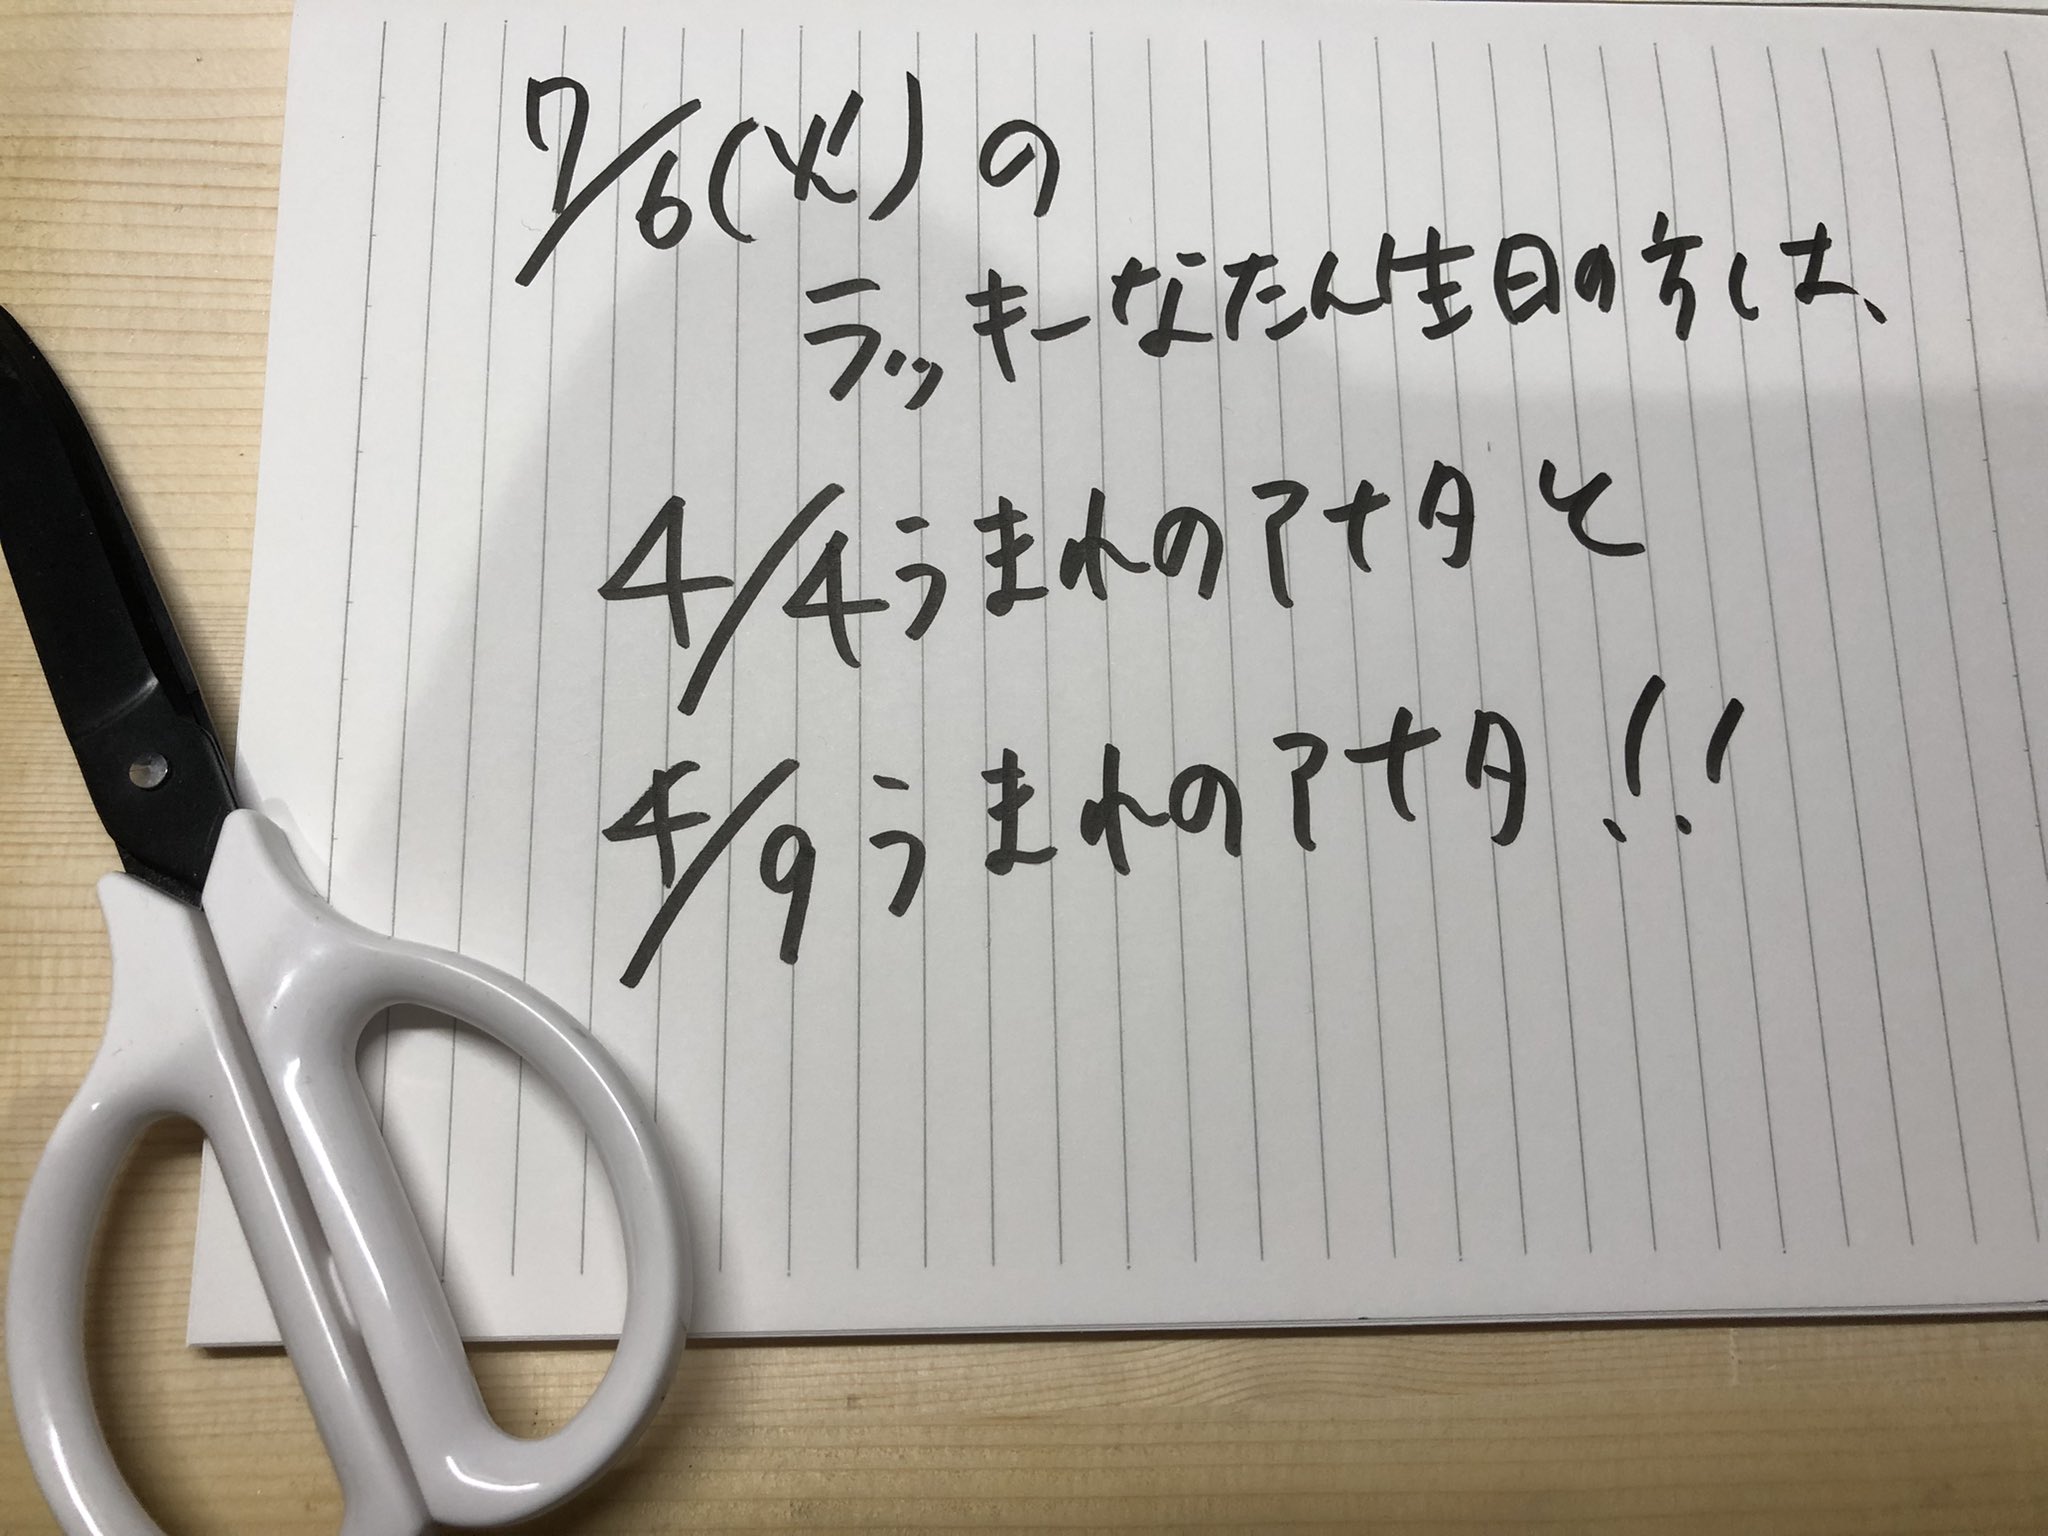 7/6(火)の
ラッキーなたん生日の方は、
4/4うまれのアナタと
4/9うまれのアナタ!!